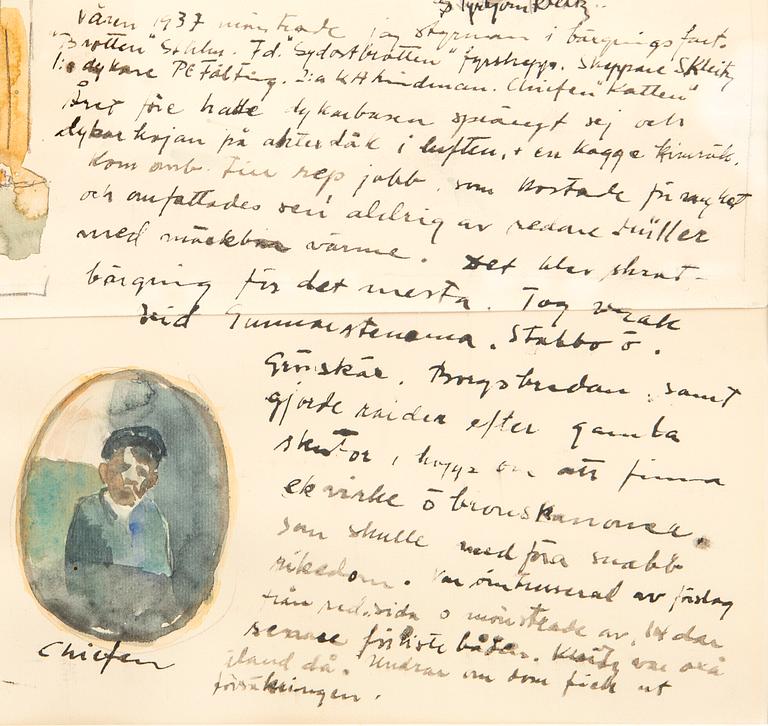 Våren 1937 mönstrade jag styrman i bärgningsfart.
"Brotten" Sthlm. F.d. "Sydostbrotten" fyrskepp. Skeppare S Kleitz
1:a dykare PE Fälting. 2:a KH Lindman. Chiefen "Katten"
Året före hade dykarbasen sprängt sej och
dykarkojan på akterdäk i luften, + en kagge kimrök.
Kom omb. till rep jobb. som kostade för mycket
och omfattades sen aldrig av redare Müller
med märkbar värme. Det blev skrot-
bärgning för det mesta. Tog vrak
vid Gunnarstenarna. Stabbo ö.
Grönskär. Borgsbredan. samt
gjorde raider efter gamla
skutor, i hopp om att finna
ekvirke o bronskanoner.
som skulle medföra snabb
rikedom. Var omtuserad av förslag
från red:sida o mönstrade av. 14 dar
senare förliste båten. Kleitz var oxå
iland då. Undrar om dom fick ut
försäkringen.
Chiefen